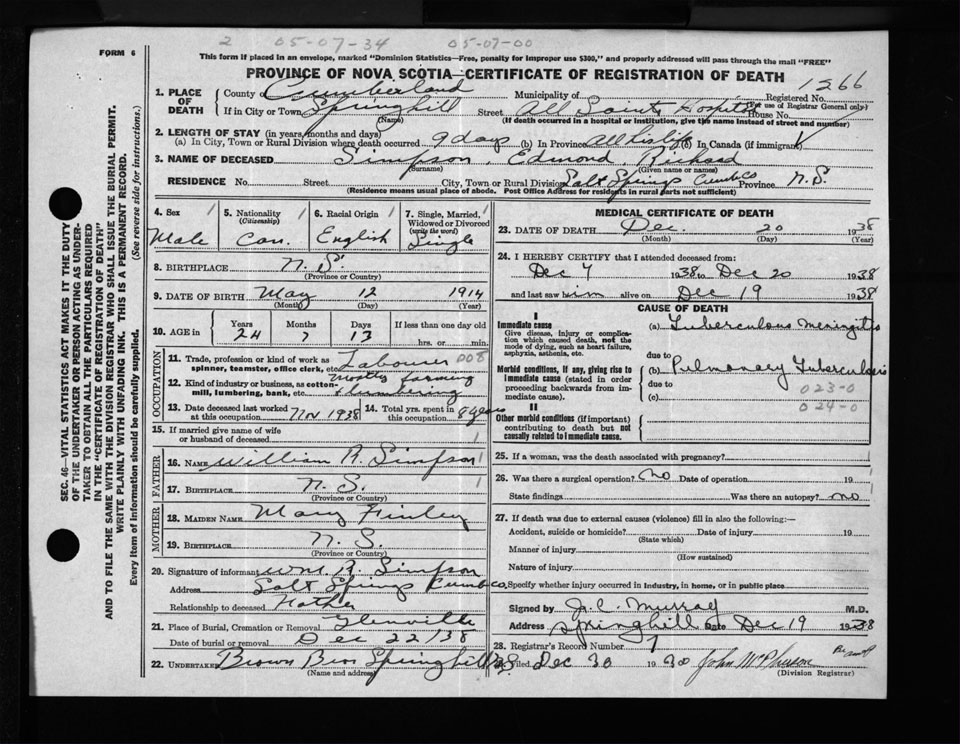 2 05-07-34 05-07-00
FORM 6
This form if placed in an envelope, marked "Dominion Statistics—Free, penalty for improper use $300," and properly addressed will pass through the mail "FREE"
PROVINCE OF NOVA SCOTIA—CERTIFICATE OF REGISTRATION OF DEATH
1266
1. PLACE OF DEATH County of Cumberland Municipality of Registered No.
(For use of Registrar General only)
If in City or Town Springhill Street All Saints Hospital House No.
(Name) (If death occurred in a hospital or institution, give the name instead of street and number)
2. LENGTH OF STAY (in years, months and days)
(a) In City, Town or Rural Division where death occurred 9 days (b) In Province All his life (c) In Canada (if immigrant)
3. NAME OF DECEASED Simpson, Edmond Richard
(Surname) (Given name or names)
RESIDENCE No. Street City, Town or Rural Division Salt Springs Cumb Co Province N.S.
(Residence means usual place of abode. Post Office Address for residents in rural parts not sufficient)
4. Sex Male
5. Nationality (Citizenship) Can.
6. Racial Origin English
7. Single, Married, Widowed or Divorced (write the word) Single
8. BIRTHPLACE N.S.
(Province or Country)
9. DATE OF BIRTH May 12 1914
(Month) (Day) (Year)
10. AGE in Years 24 Months 7 Days 13 If less than one day old hrs. or min.
OCCUPATION
11. Trade, profession or kind of work as spinner, teamster, office clerk, etc. Labourer 008
12. Kind of industry or business, as cotton-mill, lumbering, bank, etc. Mostly farming & lumbering
13. Date deceased last worked at this occupation Nov 1938 14. Total yrs. spent in this occupation 8 years
15. If married give name of wife or husband of deceased
FATHER
16. NAME William R. Simpson
17. BIRTHPLACE N.S.
(Province or Country)
MOTHER
18. MAIDEN NAME Mary Finley
19. BIRTHPLACE N.S.
(Province or Country)
20. Signature of informant Wm. R. Simpson
Address Salt Springs Cumb Co.
Relationship to deceased Father
21. Place of Burial, Cremation or Removal Glenville
Date of burial or removal Dec 22/38
22. UNDERTAKER Brown Bros Springhill N.S.
(Name and address)
MEDICAL CERTIFICATE OF DEATH
23. DATE OF DEATH Dec. 20 1938
(Month) (Day) (Year)
24. I HEREBY CERTIFY that I attended deceased from:
Dec 7 1938 to Dec 20 1938
and last saw him alive on Dec 19 1938
CAUSE OF DEATH
I
Immediate cause
Give disease, injury or complication which caused death, not the mode of dying, such as heart failure, asphyxia, asthenia, etc.
(a) Tuberculous Meningitis
due to
Morbid conditions, if any, giving rise to immediate cause (stated in order proceeding backwards from immediate cause).
(b) Pulmonary Tuberculosis
due to 023-0
(c) 024-0
II
Other morbid conditions (if important) contributing to death but not causally related to immediate cause.
25. If a woman, was the death associated with pregnancy?
26. Was there a surgical operation? No Date of operation 19
State findings Was there an autopsy? no
27. If death was due to external causes (violence) fill in also the following:—
Accident, suicide or homicide? Date of injury 19
(State which)
Manner of injury
(How sustained)
Nature of injury
Specify whether injury occurred in industry, in home, or in public place
Signed by J. C. Murray M.D.
Address Springhill Date Dec 19 1938
28. Registrar's Record Number 7
Filed Dec 30 John McPherson
(Division Registrar)
SEC. 46—VITAL STATISTICS ACT MAKES IT THE DUTY
OF THE UNDERTAKER OR PERSON ACTING AS UNDER-
TAKER TO OBTAIN ALL THE PARTICULARS REQUIRED
IN THE "CERTIFICATE OF REGISTRATION OF DEATH"
AND TO FILE THE SAME WITH THE DIVISION REGISTRAR WHO SHALL ISSUE THE BURIAL PERMIT.
WRITE PLAINLY WITH UNFADING INK. THIS IS A PERMANENT RECORD.
Every item of information should be carefully supplied. (See reverse side for instructions.)